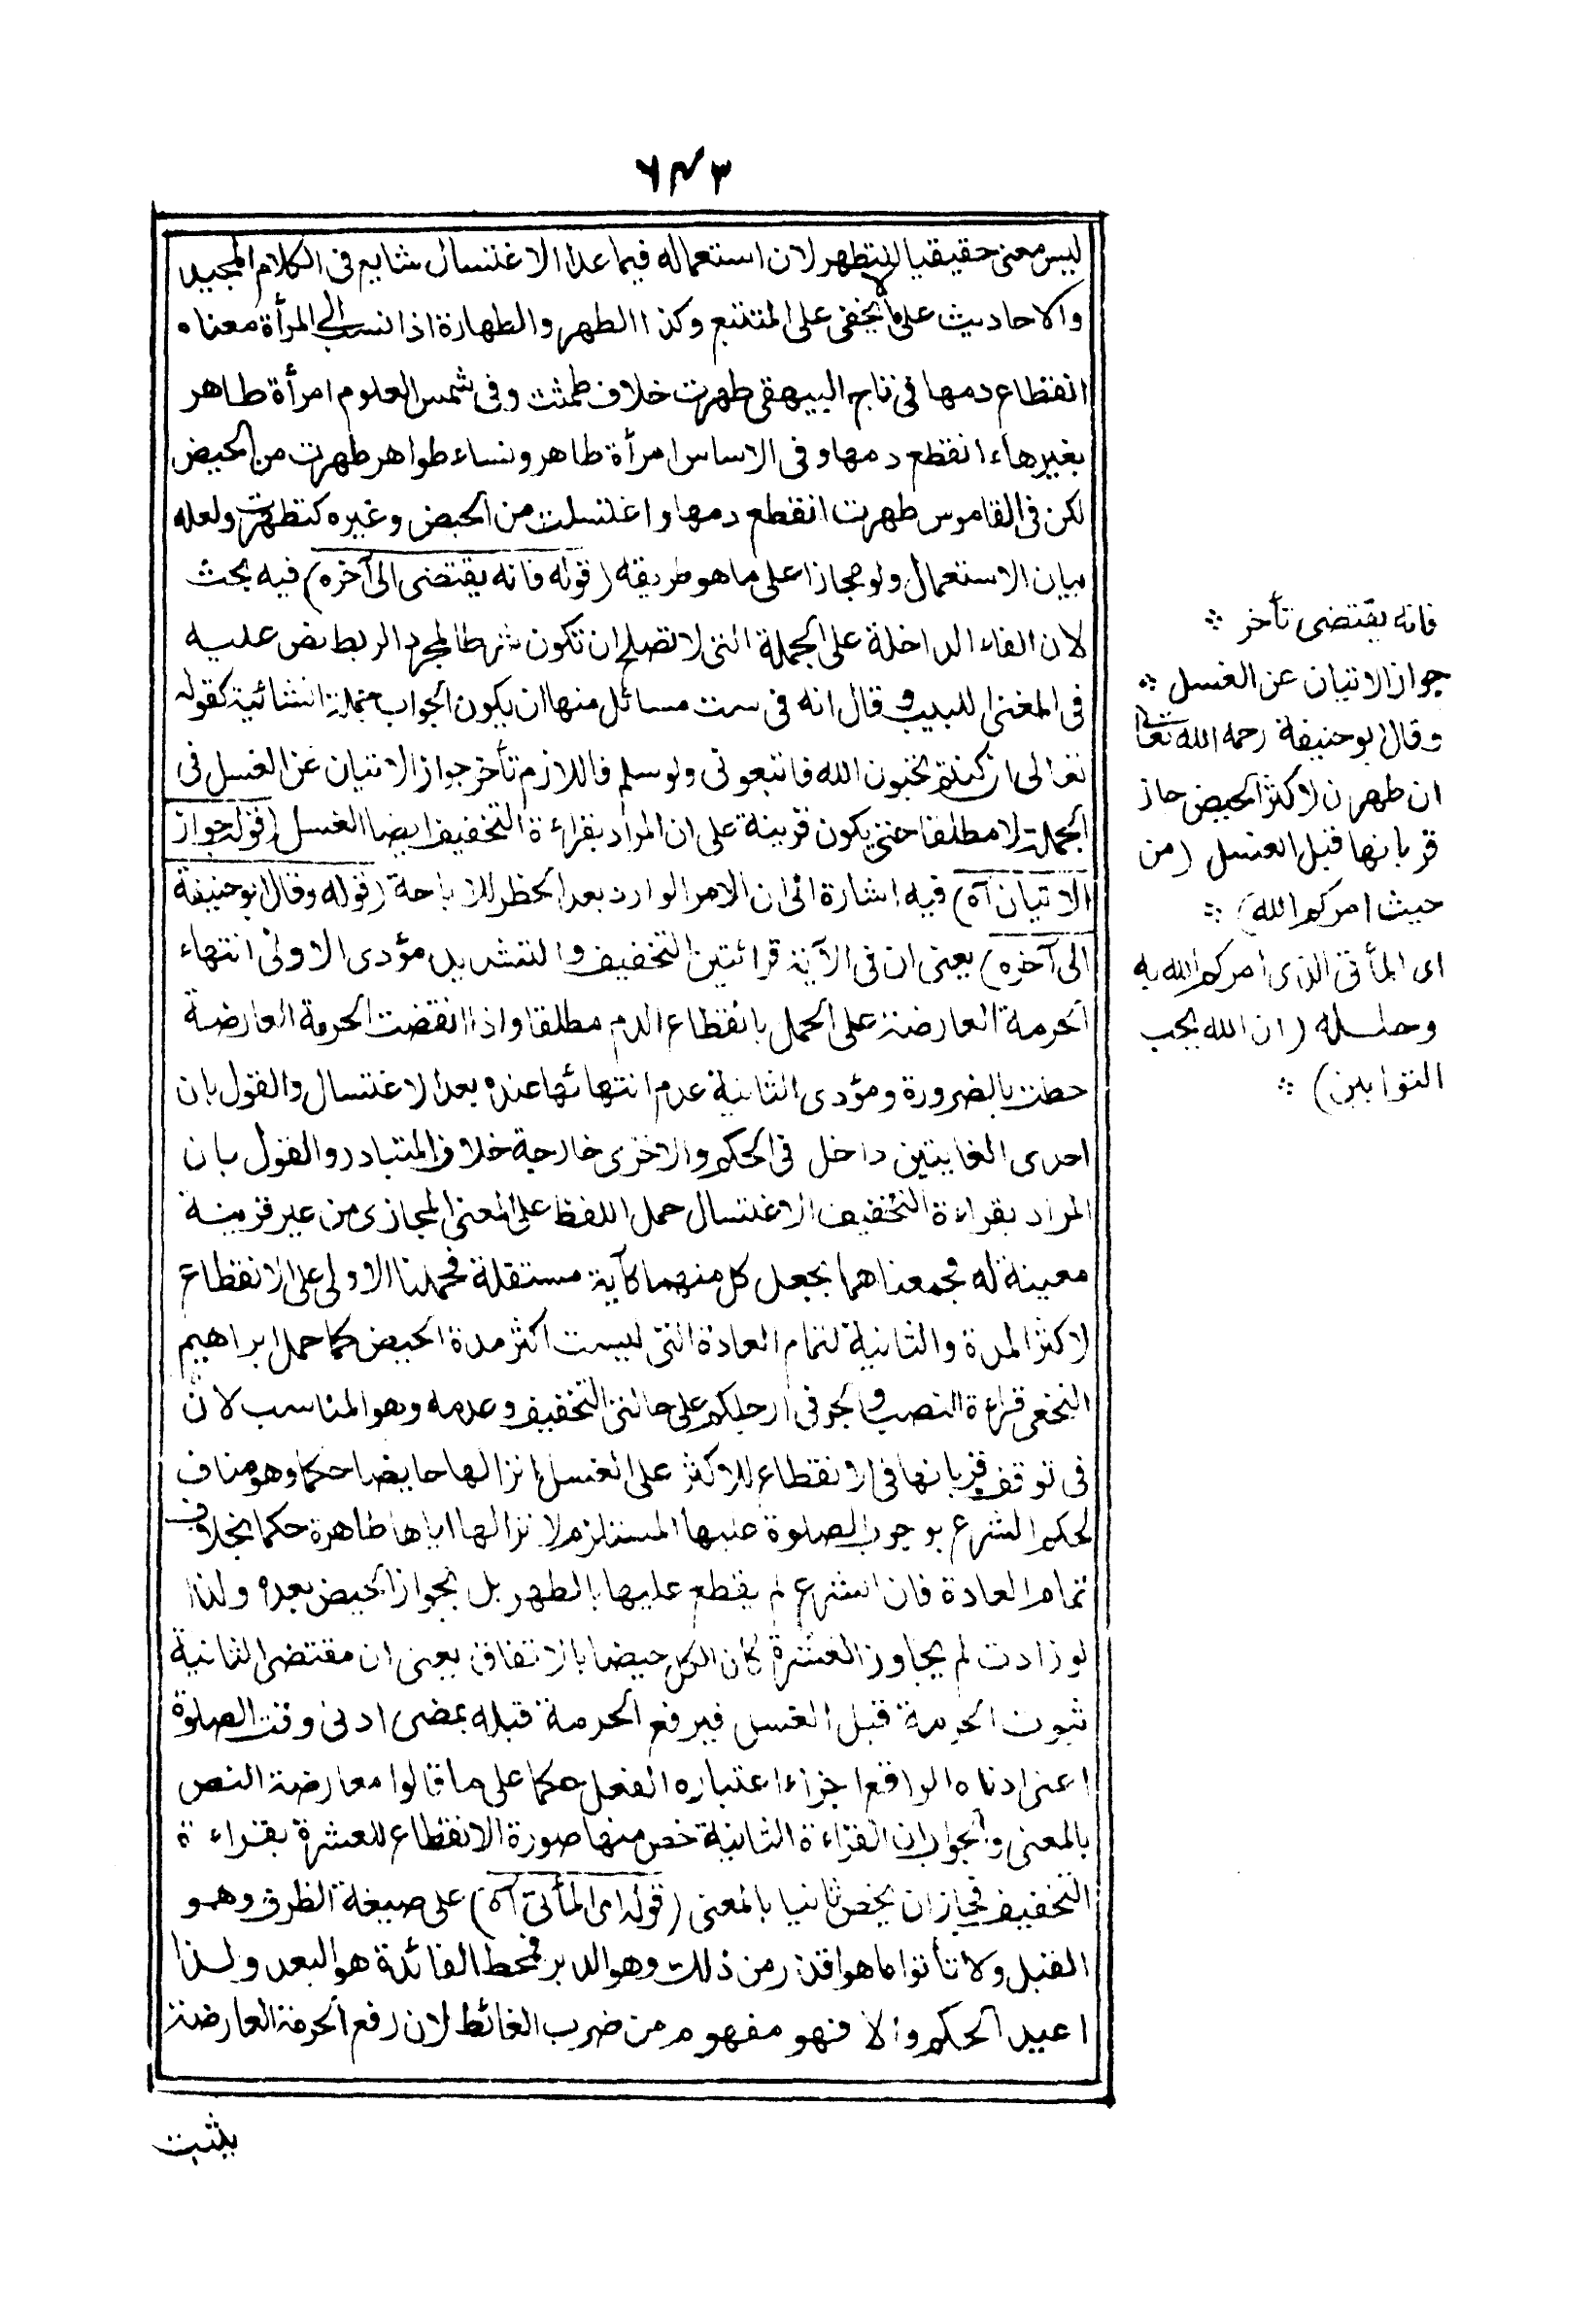 ٦٤٣
ليس معنى حقيقيا للتطهر لان استعماله فيما عدا الاغتسال شايع فى الكلام المجيد
والاحاديث على ما لا يخفى على المتتبع وكذا الطهر والطهارة اذا نسب الى المرأة معناه
انقطاع دمها فى تاج البيهقى طهرت خلاف طمثت وفى شمس العلوم امرأة طاهر
بغير هاء انقطع دمها وفى الاساس امرأة طاهر ونساء طواهر طهرت من الحيض
لكن فى القاموس طهرت انقطع دمها واغتسلت من الحيض وغيره كتطهرت ولعله
بيان الاستعمال ولو مجازا على ما هو طريقه (قوله فانه يقتضى الى آخره) فيه بحث
لان الفاء الداخلة على الجملة التى لا تصلح ان تكون شرطا لمجرد الربط نص عليه
فى المغنى اللبيب وقال انه فى ست مسائل منها ان يكون الجواب جملة انشائية كقوله
تعالى ان كنتم تحبون الله فاتبعونى ولو سلم فاللازم تأخر جواز الاتيان عن الغسل فى
الجملة لا مطلقا حتى يكون قرينة على ان المراد بقراءة التخفيف ايضا الغسل (قوله جواز
الاتيان آه) فيه اشارة الى ان الامر الوارد بعد الحظر للاباحة (قوله وقال ابو حنيفة
الى آخره) يعنى ان فى الآية قرائتين التخفيف والتشديد مؤدى الاولى انتهاء
الحرمة العارضة على الحمل بانقطاع الدم مطلقا واذا انقضت الحرمة العارضة
حلت بالضرورة ومؤدى الثانية عدم انتهائها عنده بعد الاغتسال والقول بان
احدى الغايتين داخل فى الحكم والاخرى خارجة خلاف المتبادر والقول بان
المراد بقراءة التخفيف الاغتسال حمل اللفظ على المعنى المجازى من غير قرينة
معينة له فجمعناهما بجعل كل منهما كآية مستقلة فحملنا الاولى على الانقطاع
لاكثر المدة والثانية لتمام العادة التى ليست اكثر مدة الحيض كما حمل ابراهيم
النخعى قراءة النصب والجر فى ارجلكم على حالتى التخفيف وعدمه وهو المناسب لان
فى توقف قربانها فى الانقطاع للاكثر على الغسل انزالها حايضا حكما وهو مناف
لحكم الشرع بوجوب الصلوة عليها المستلزم لانزالها اياها طاهرة حكما بخلاف
تمام العادة فان الشرع لم يقطع عليها بالطهر بل بجواز الحيض بعده ولذا
لو زادت لم يجاوز العشرة كان الكل حيضا بالاتفاق يعنى ان مقتضى الثانية
ثبوت الحرمة قبل الغسل فيرفع الحرمة قبله بمضى ادنى وقت الصلوة
اعنى ادناه الواقع اجزاء اعتباره الفعل حكما على ما قالوا معارضة النص
بالمعنى والجواب ان القراءة الثانية خص منها صورة الانقطاع للعشرة بقراءة
التخفيف فجاز ان يخص ثانيا بالمعنى (قوله اى المأتى آه) على صيغة الظرف وهو
القبل ولا تأتوا ما هو اقذر من ذلك وهو الدبر فمحط الفائدة هو البعد ولذا
اعيد الحكم والا فهو مفهوم من ضرب الغائط لان رفع الحرمة العارضة
يثبت
فانه يقتضى تأخر
جواز الاتيان عن الغسل
وقال ابو حنيفة رحمه الله تعالى
ان طهرن لاكثر الحيض جاز
قربانها قبل الغسل (من
حيث امركم الله)
اى المأتى الذى امركم الله به
وحلله (ان الله يحب
التوابين)